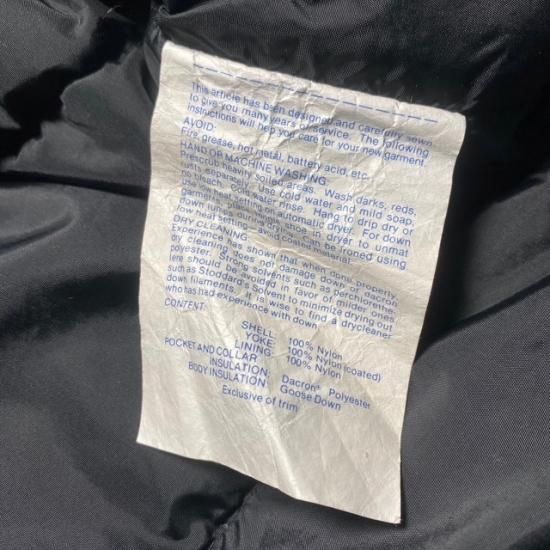 This article has been designed and carefully sewn
to give you many years of service. The following
instructions will help you care for your new garment.
AVOID:
Fire, grease, hot metal, battery acid, etc.
HAND OR MACHINE WASHING:
Prescrub heavily soiled areas. Wash darks, reds,
rusts separately. Use cold water and mild soap,
no bleach. Cold water rinse. Hang to drip dry or
use low heat setting on automatic dryer. For down
garments, place tennis shoe in dryer to unmat
down clumps during drying. Can be ironed using
low heat setting—avoid coated material.
DRY CLEANING:
Experience has shown that when done properly,
dry cleaning does not damage down or dacron
polyester. Strong solvents such as perchlorethe-
lene should be avoided in favor of milder ones
such as Stoddard's Solvent to minimize drying out
down filaments. It is wise to find a drycleaner
who has had experience with down
CONTENT:
SHELL 100% Nylon
YOKE: 100% Nylon (coated)
LINING: 100% Nylon
POCKET AND COLLAR
INSULATION: Dacron® Polyester
BODY INSULATION: Goose Down
Exclusive of trim